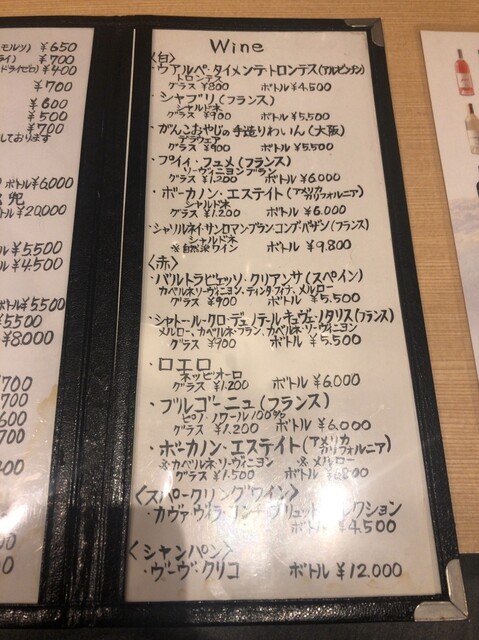 モルツ) ¥650
ライ) ¥700
ドライゼロ) ¥400
¥700
¥600
¥500
¥700
しております
ボトル¥6,000
ボトル ¥20,000
ボトル ¥5500
ボトル ¥4500
ボトル ¥5,500
¥5500
¥8000
¥700
¥700
¥600
¥700
Wine
〈白〉
・ヴアルペ・タイメンテ・トロンテス(アルゼンチン)
トロンテス
グラス ¥800 ボトル ¥4,500
・シャブリ(フランス)
シャルドネ
グラス ¥900 ボトル ¥5,500
・がんこおやじの手造りわいん(大阪)
デラウェア
グラス ¥900 ボトル ¥5,500
・プイィ・フュメ(フランス)
ソーヴィニヨンブラン
グラス ¥1,200 ボトル ¥6.000
・ボーカノン・エステイト(アメリカ カリフォルニア)
シャルドネ
グラス ¥1.200 ボトル ¥6.000
・シャソルネイ・サンロマンブラン・コンブ・バザン(フランス)
シャルドネ
※自然派ワイン ボトル ¥9.800
〈赤〉
・バルトラビエッソ・クリアンサ(スペイン)
カベルネソーヴィニヨン、ティンタ・フィナ、メルロー
グラス ¥900 ボトル ¥5,500
・シャトー・ルクロ・デュ・ノテール キュヴェ・ノタリス(フランス)
メルロー、カベルネ・フラン、カベルネ・ソーヴィニヨン
グラス ¥900 ボトル ¥5.500
・ロエロ
ネッビオーロ
グラス ¥1.200 ボトル ¥6.000
・ブルゴーニュ(フランス)
ピノ・ノワール 100%
グラス ¥1.200 ボトル ¥6.000
・ボーカノン・エステイト(アメリカ カリフォルニア)
※カベルネ・ソーヴィニヨン ※メルロー
グラス ¥1.500 ボトル ¥6800
〈スパークリングワイン〉
・カヴァ・ヴィラ・リュット レクション
ボトル ¥4.500
〈シャンパン〉
・ヴーヴ・クリコ ボトル ¥12.000